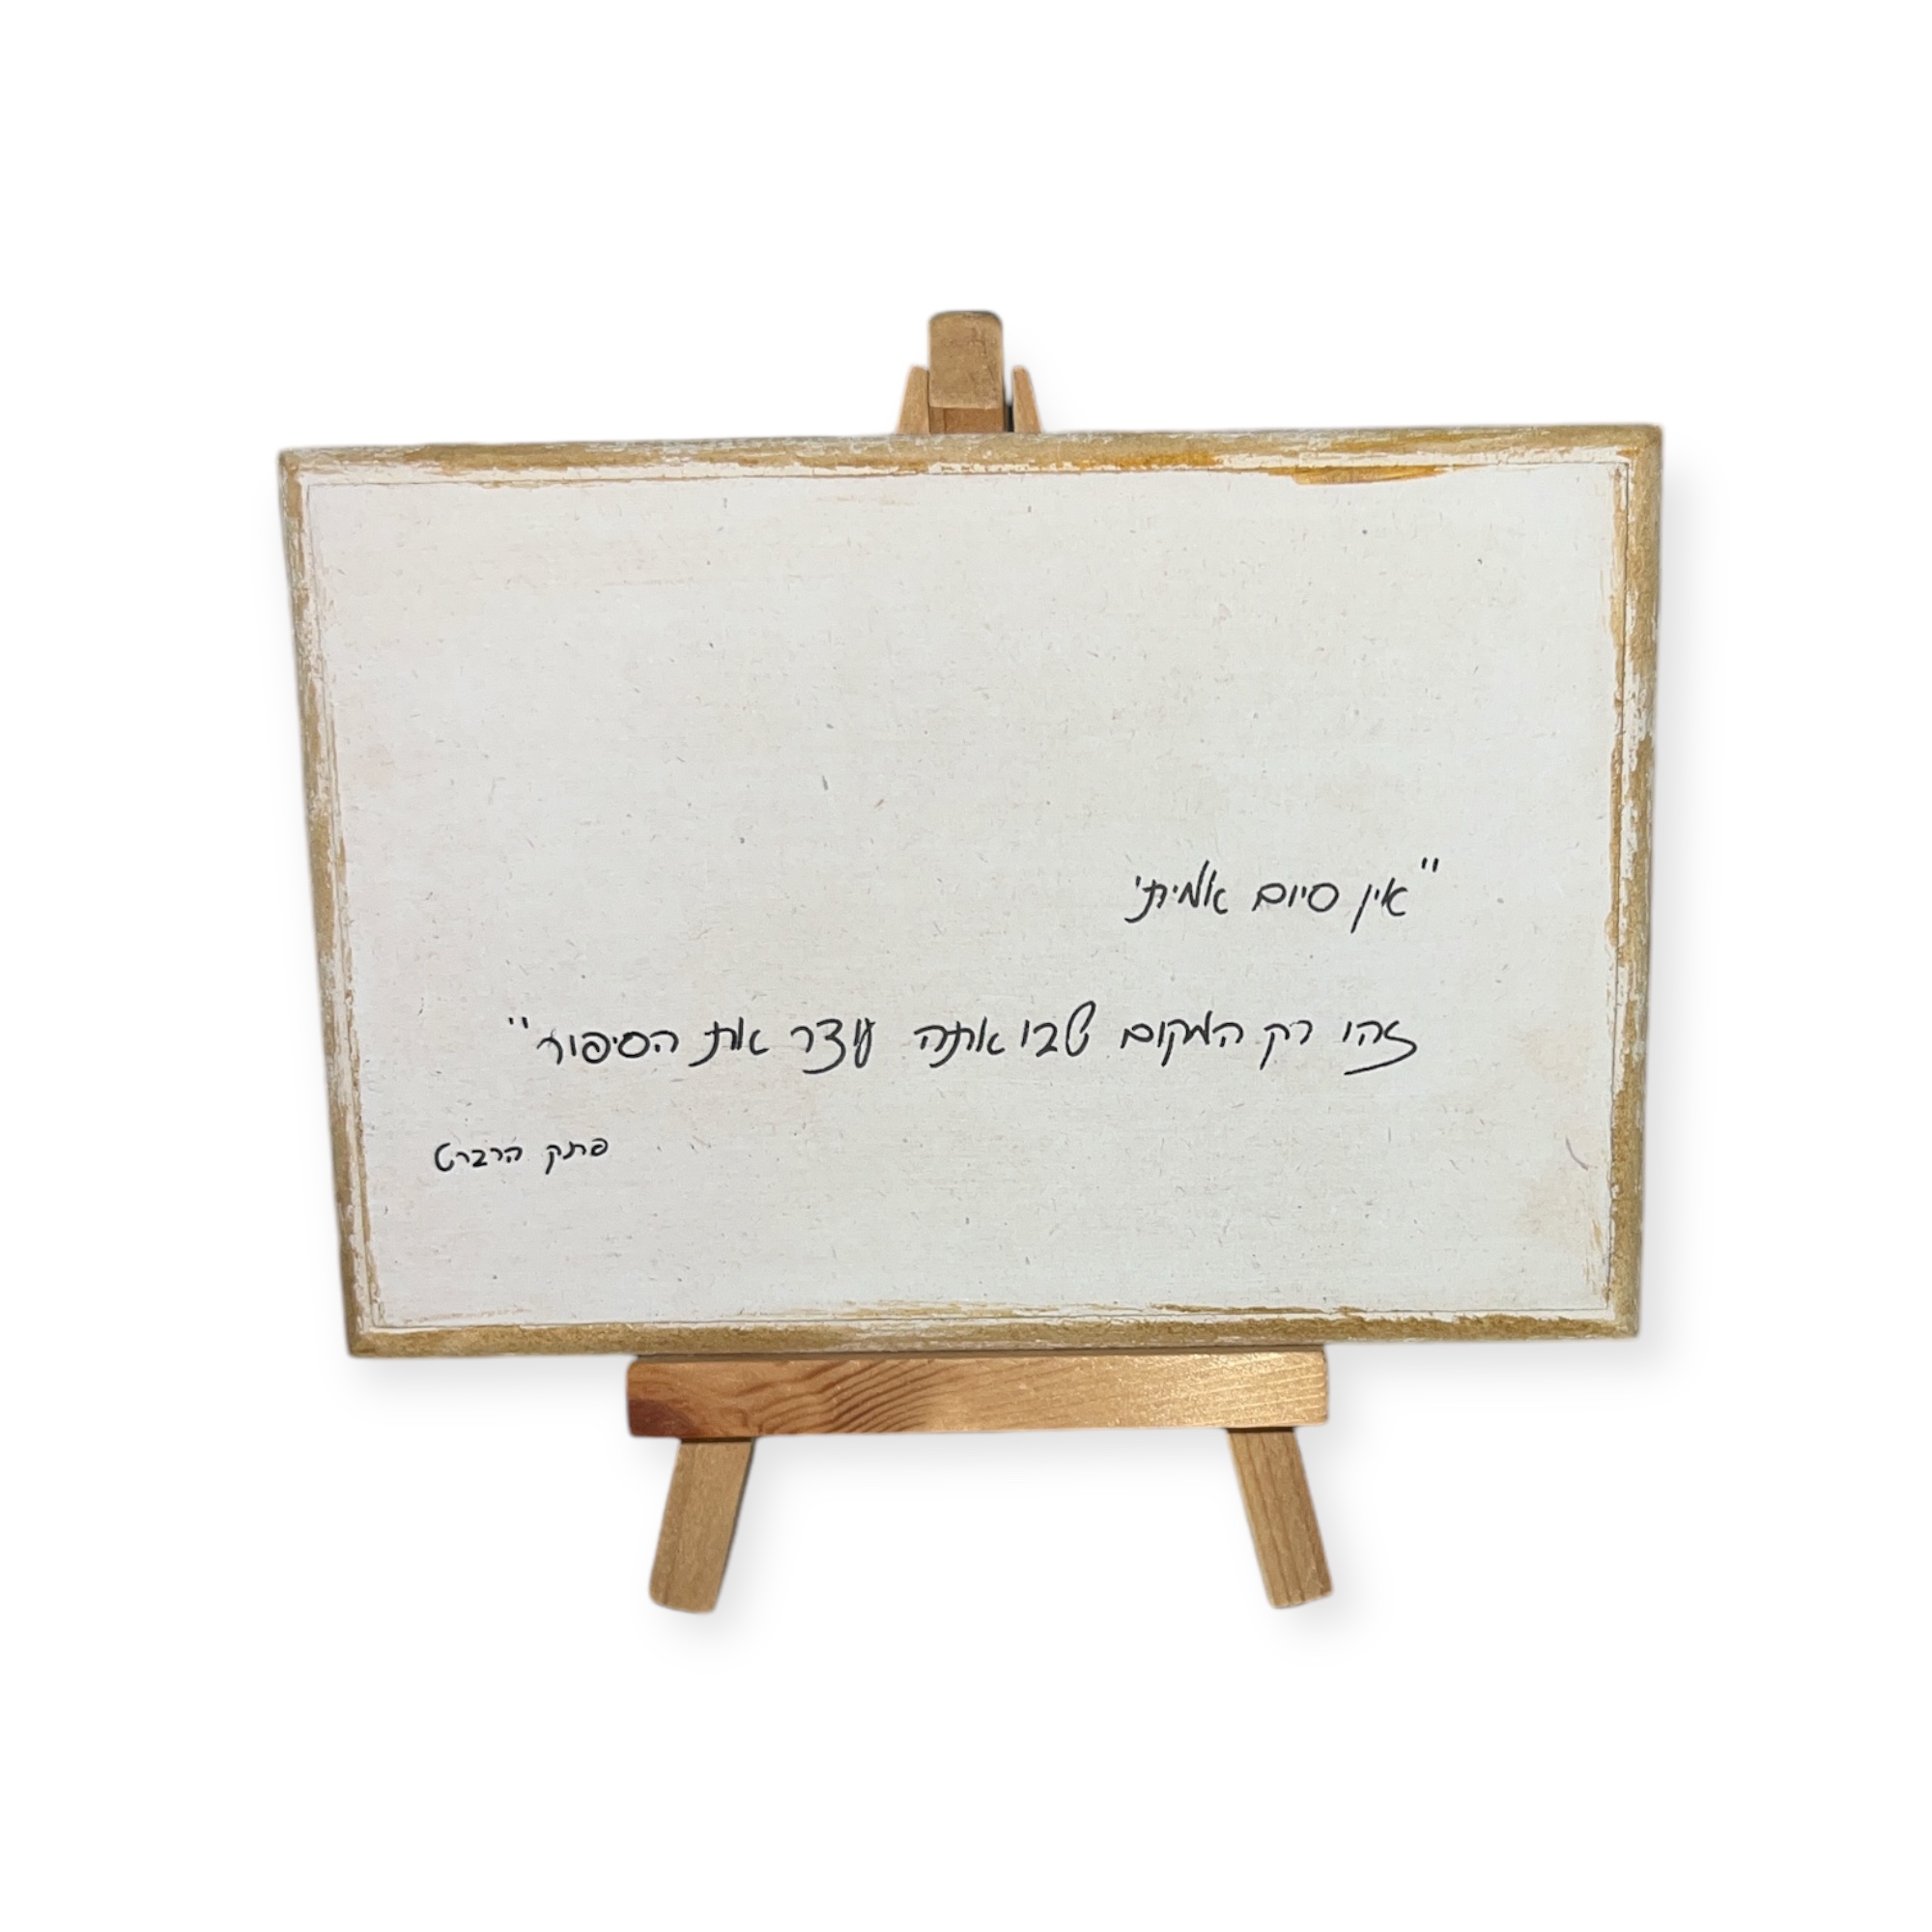 "אין סיום אמיתי
זהו רק המקום שבו אתה עצר את הסיפור"
פתק הרברט